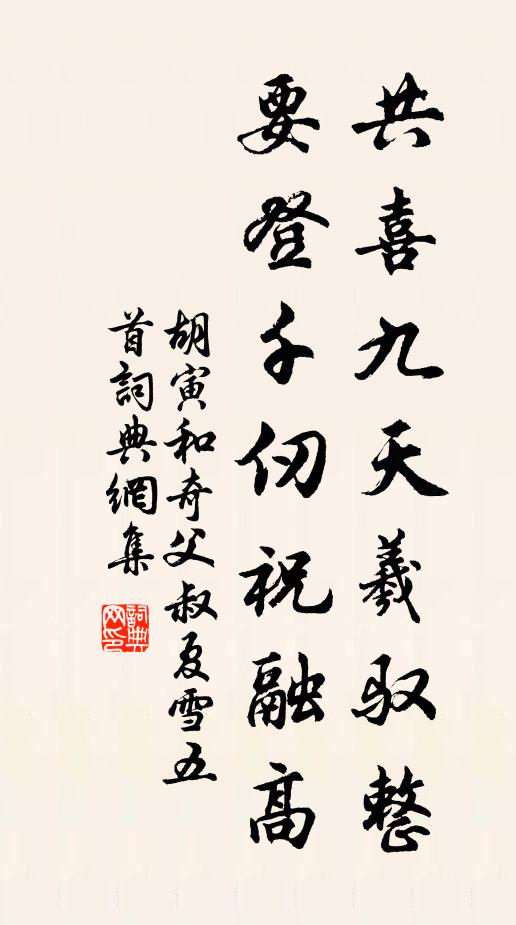 共喜九天羲驭整
要登千仞祝融高
胡寅和奇父叔夏雪五
首詞典網集
詞典
网印